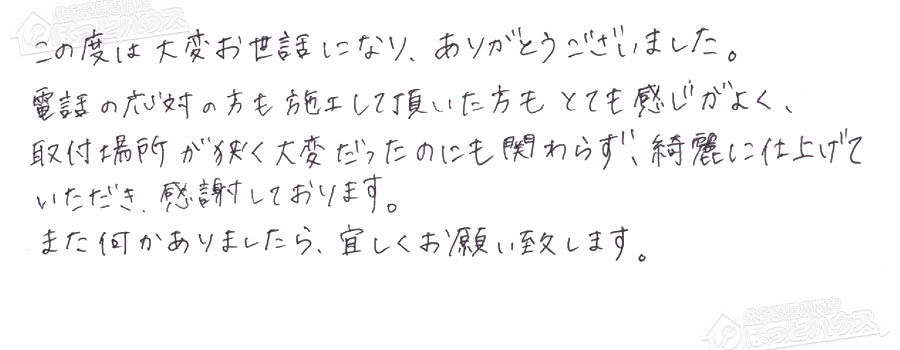 この度は大変お世話になり、ありがとうございました。
電話の応対の方も施工して頂いた方もとても感じがよく、
取付場所が狭く大変だったのにも関わらず、綺麗に仕上げて
いただき、感謝しております。
また何かありましたら、宜しくお願い致します。
住宅設備専門店
ほっとハウス
住宅設備専門店
ほっとハウス